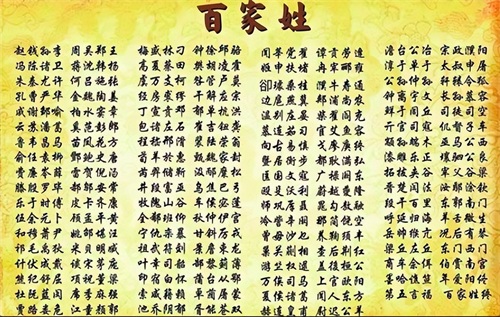 百家姓
赵钱孙李周吴郑王
冯陈褚卫蒋沈韩杨
朱秦尤许何吕施张
孔曹严华金魏陶姜
戚谢邹喻柏水窦章
云苏潘葛奚范彭郎
鲁韦昌马苗凤花方
俞任袁柳酆鲍史唐
费廉岑薛雷贺倪汤
滕殷罗毕郝邬安常
乐于时傅皮卞齐康
伍余元卜顾孟平黄
和穆萧尹姚邵湛汪
祁毛禹狄米贝明臧
计伏成戴谈宋茅庞
熊纪舒屈项祝董梁
杜阮蓝闵席季麻强
贾路娄危江童颜郭
梅盛林刁钟徐邱骆
高夏蔡田樊胡凌霍
虞万支柯昝管卢莫
经房裘缪干解应宗
丁宣贲邓郁单杭洪
包诸左石崔吉钮龚
程嵇邢滑裴陆荣翁
荀羊於惠甄曲家封
芮羿储靳汲邴糜松
井段富巫乌焦巴弓
牧隗山谷车侯宓蓬
全郗班仰秋仲伊宫
宁仇栾暴甘钭厉戎
祖武符刘景詹束龙
叶幸司韶郜黎蓟薄
印宿白怀蒲邰从鄂
索咸籍赖卓蔺屠蒙
池乔阴郁胥能苍双
闻莘党翟谭贡劳逄
姬申扶堵冉宰郦雍
郤璩桑桂濮牛寿通
边扈燕冀郏浦尚农
温别庄晏柴瞿阎充
慕连茹习宦艾鱼容
向古易慎戈廖庾终
暨居衡步都耿满弘
匡国文寇广禄阙东
欧殳沃利蔚越夔隆
师巩厍聂晁勾敖融
冷訾辛阚那简饶空
曾毋沙乜养鞠须丰
巢关蒯相查后荆红
游竺权逯盖益桓公
万俟司马上官欧阳
夏侯诸葛闻人东方
赫连皇甫尉迟公羊
澹台公冶宗政濮阳
淳于单于太叔申屠
公孙仲孙轩辕令狐
钟离宇文长孙慕容
鲜于闾丘司徒司空
亓官司寇仉督子车
颛孙端木巫马公西
漆雕乐正壤驷公良
拓跋夹谷宰父谷梁
晋楚闫法汝鄢涂钦
段干百里东郭南门
呼延归海羊舌微生
岳帅缑亢况后有琴
梁丘左丘东门西门
商牟佘佴伯赏南宫
墨哈谯笪年爱阳佟
第五言福百家姓终